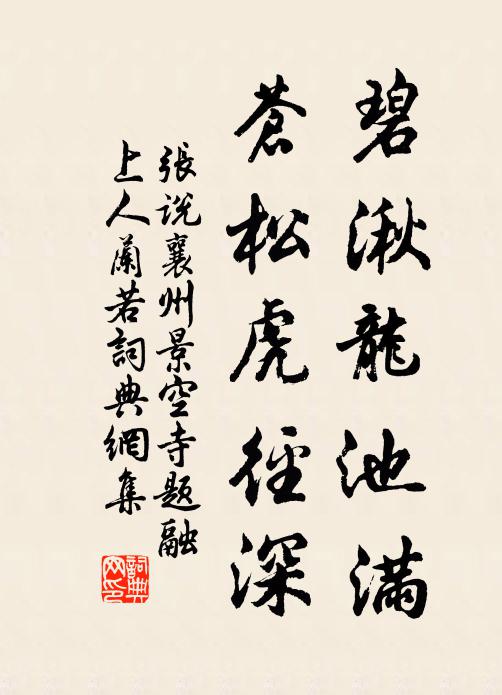 碧湫龍池滿
蒼松虎徑深
張說襄州景空寺題融
上人蘭若詞典網集
詞典网印